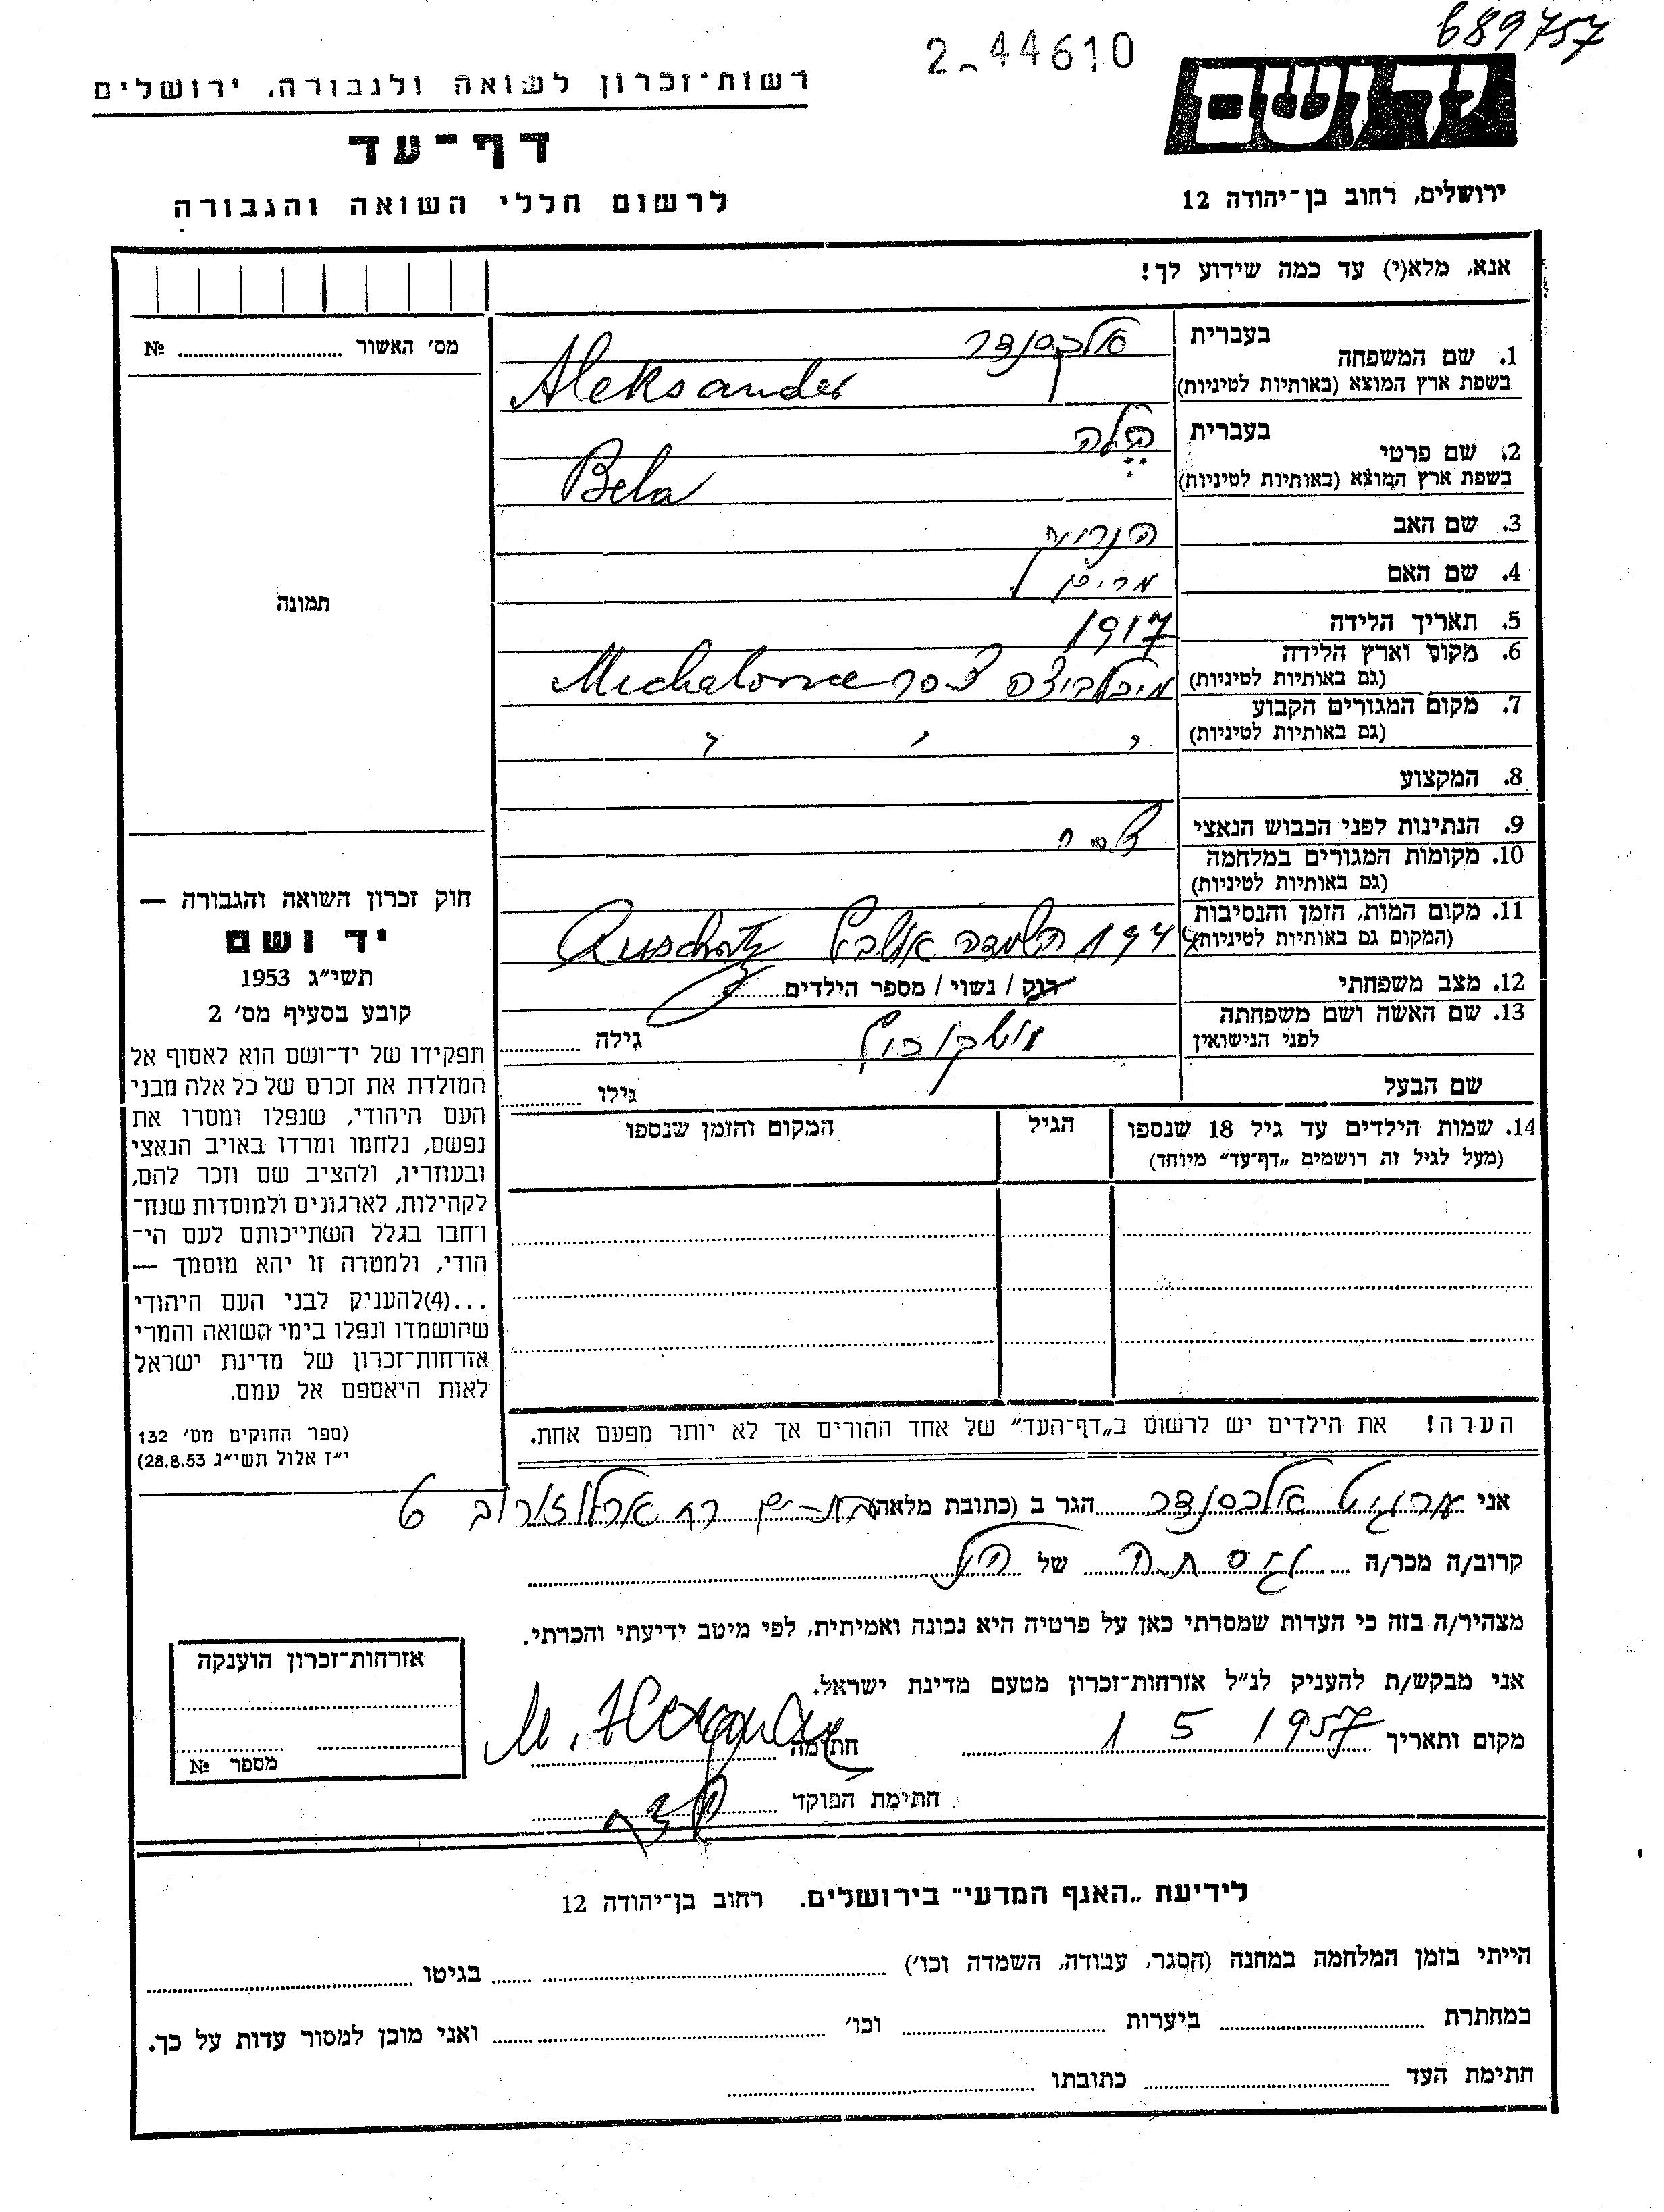 689757
2-44610
יד ושם
רשות־זכרון לשואה ולגבורה, ירושלים
דף־עד
לרשום חללי השואה והגבורה
ירושלים, רחוב בן־יהודה 12
אנא, מלא(י) עד כמה שידוע לך!
מס׳ האשור № 
תמונה
1. שם המשפחה
בעברית אלכסנדר
בשפת ארץ המוצא (באותיות לטיניות) Aleksander
2. שם פרטי
בעברית בלה
בשפת ארץ המוצא (באותיות לטיניות) Bela
3. שם האב
4. שם האם מרים
5. תאריך הלידה 1917
6. מקום וארץ הלידה
(גם באותיות לטיניות) צ.ס.ר
7. מקום המגורים הקבוע
(גם באותיות לטיניות) " " "
8. המקצוע
9. הנתינות לפני הכבוש הנאצי צ.ס.ר
10. מקומות המגורים במלחמה
(גם באותיות לטיניות)
11. מקום המות, הזמן והנסיבות
(המקום גם באותיות לטיניות) 1944 השמדה
12. מצב משפחתי רוק / נשוי / מספר הילדים
13. שם האשה ושם משפחתה
לפני הנישואין גילה
שם הבעל גילו
14. שמות הילדים עד גיל 18 שנספו
(מעל לגיל זה רושמים „דף־עד" מיוחד)
הגיל
המקום והזמן שנספו
הערה! את הילדים יש לרשום ב„דף־העד" של אחד ההורים אך לא יותר מפעם אחת.
חוק זכרון השואה והגבורה —
יד ושם
תשי״ג 1953
קובע בסעיף מס׳ 2
תפקידו של יד־ושם הוא לאסוף אל
המולדת את זכרם של כל אלה מבני
העם היהודי, שנפלו ומסרו את
נפשם, נלחמו ומרדו באויב הנאצי
ובעוזריו, ולהציב שם וזכר להם,
לקהילות, לארגונים ולמוסדות שנח־
רחבו בגלל השתייכותם לעם הי־
הודי, ולמטרה זו יהא מוסמך —
...(4)להעניק לבני העם היהודי
שהושמדו ונפלו בימי השואה והמרי
אזרחות־זכרון של מדינת ישראל
לאות היאספם אל עמם.
(ספר החוקים מס׳ 132
י״ז אלול תשי״ג 28.8.53)
אני מרגיט אלכסנדר הגר ב (כתובת מלאה) בת-ים רח ארלוזורוב 6
קרוב/ה מכר/ה גיסתה של הנ"ל
מצהיר/ה בזה כי העדות שמסרתי כאן על פרטיה היא נכונה ואמיתית, לפי מיטב ידיעתי והכרתי.
אני מבקש/ת להעניק לנ״ל אזרחות־זכרון מטעם מדינת ישראל.
מקום ותאריך 1 5 1957 חתימה
חתימת הפוקד
אזרחות־זכרון הוענקה
מספר №
לידיעת „האגף המדעי" בירושלים. רחוב בן־יהודה 12
הייתי בזמן המלחמה במחנה (הסגר, עבודה, השמדה וכו׳) בגיטו
במחתרת ביערות וכו׳ ואני מוכן למסור עדות על כך.
חתימת העד כתובתו